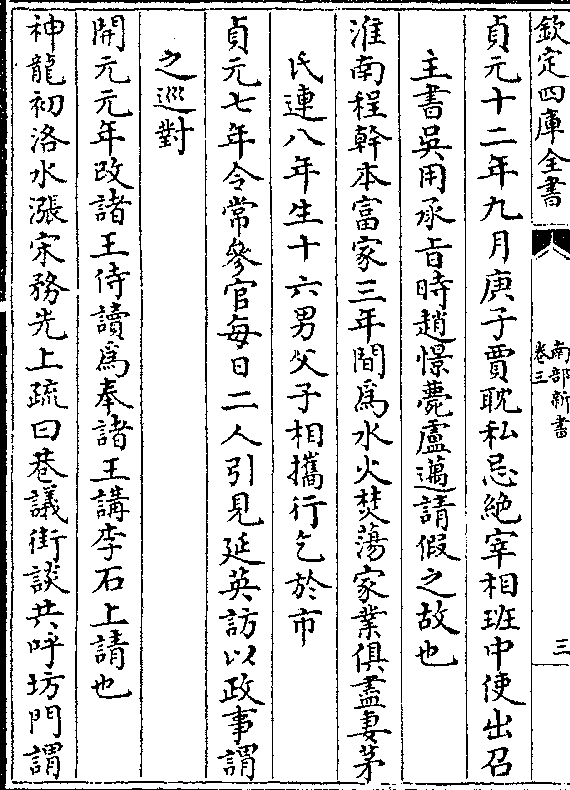 欽定四庫全書
南部新書
卷三
三
貞元十二年九月庚子賈耽私忌絶宰相班中使出召
主書吳用承旨時趙憬薨盧邁請假之故也
淮南程幹本富家三年間爲水火焚蕩家業俱盡妻茅
氏連八年生十六男父子相攜行乞於市
貞元七年令常參官每日二人引見延英訪以政事謂
之巡對
開元元年改諸王侍讀爲奉諸王講李石上請也
神龍初洛水漲宋務先上疏曰巷議街談共呼坊門謂